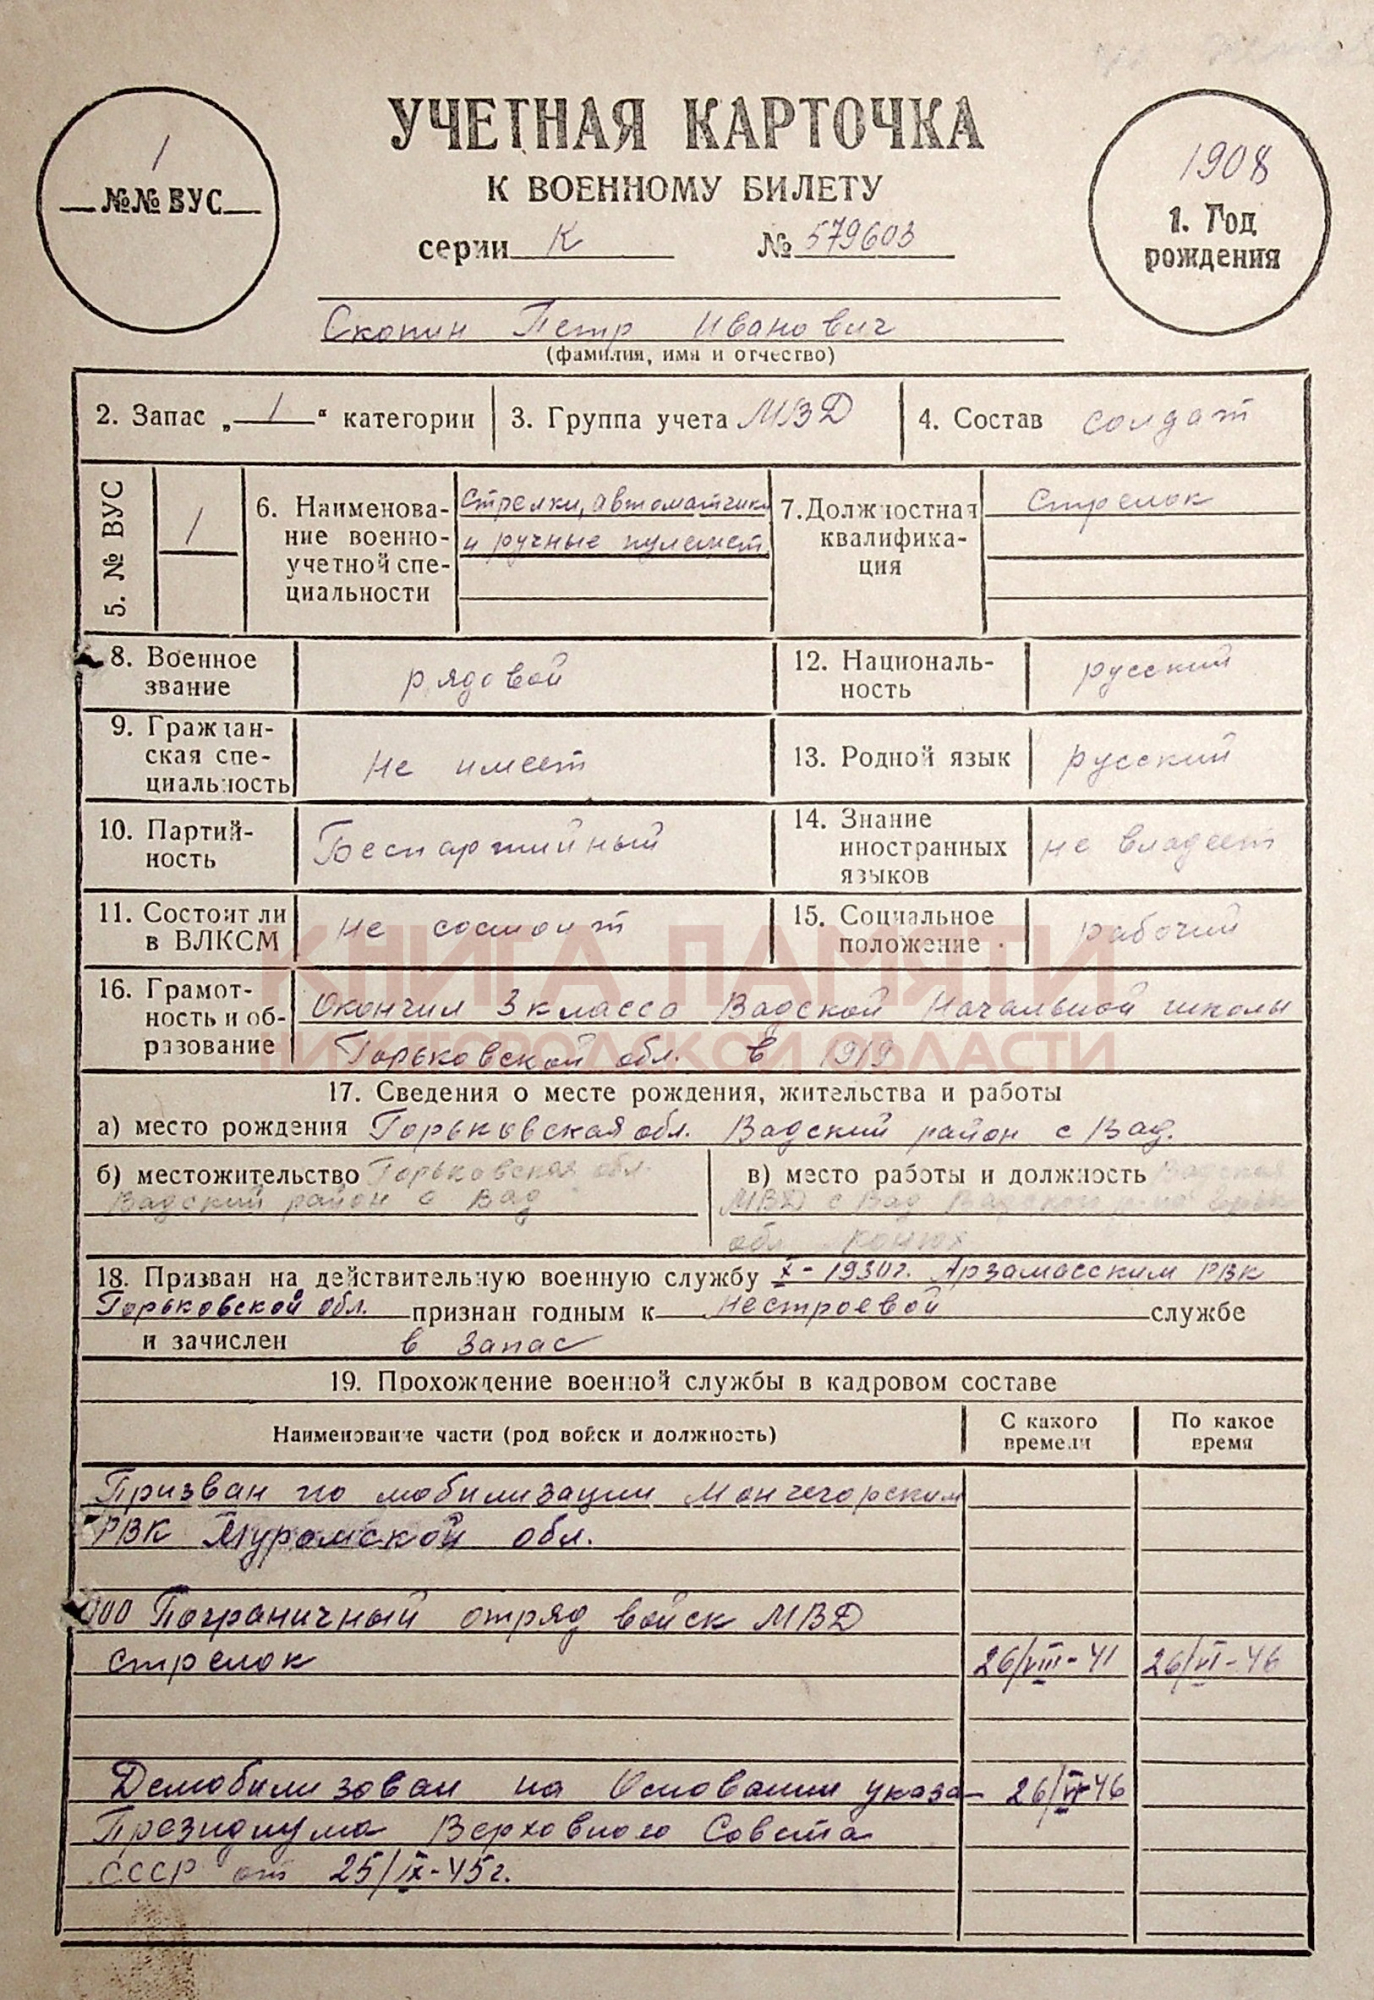 1
№№ ВУС
УЧЕТНАЯ КАРТОЧКА
К ВОЕННОМУ БИЛЕТУ
серии К № 579603
1908
1. Год
рождения
Скопин Петр Иванович
(фамилия, имя и отчество)
2. Запас „1“ категории
3. Группа учета МВД
4. Состав солдат
5. № ВУС
1
6. Наименова-
ние военно-
учетной спе-
циальности
Стрелки, автоматчики
и ручные пулемет.
7. Должностная
квалифика-
ция
Стрелок
8. Военное
звание
рядовой
12. Националь-
ность
русский
9. Граждан-
ская спе-
циальность
не имеет
13. Родной язык
русский
10. Партий-
ность
Беспартийный
14. Знание
иностранных
языков
не владеет
11. Состоит ли
в ВЛКСМ
не состоит
15. Социальное
положение
рабочий
КНИГА ПАМЯТИ
НИЖЕГОРОДСКОЙ ОБЛАСТИ
16. Грамот-
ность и об-
разование
Окончил 3 класса Вадской Начальной школы
Горьковской обл. в 1919
17. Сведения о месте рождения, жительства и работы
а) место рождения Горьковская обл. Вадский район с Вад.
б) местожительство Горьковская обл.
Вадский район с Вад
в) место работы и должность Вадская
МВД с Вад Вадского р-на
обл конюх
18. Призван на действительную военную службу X-1930г. Арзамасским РВК
Горьковской обл. признан годным к нестроевой службе
и зачислен в запас
19. Прохождение военной службы в кадровом составе
Наименование части (род войск и должность)
С какого
времени
По какое
время
Призван по мобилизации Мончегорским
РВК обл.
Пограничный отряд войск МВД
стрелок 26/VIII-41 26/VI-46
Демобилизован на Основании указа 26/VI-46
Президиума Верховного Совета
СССР от 25/IX-45г.